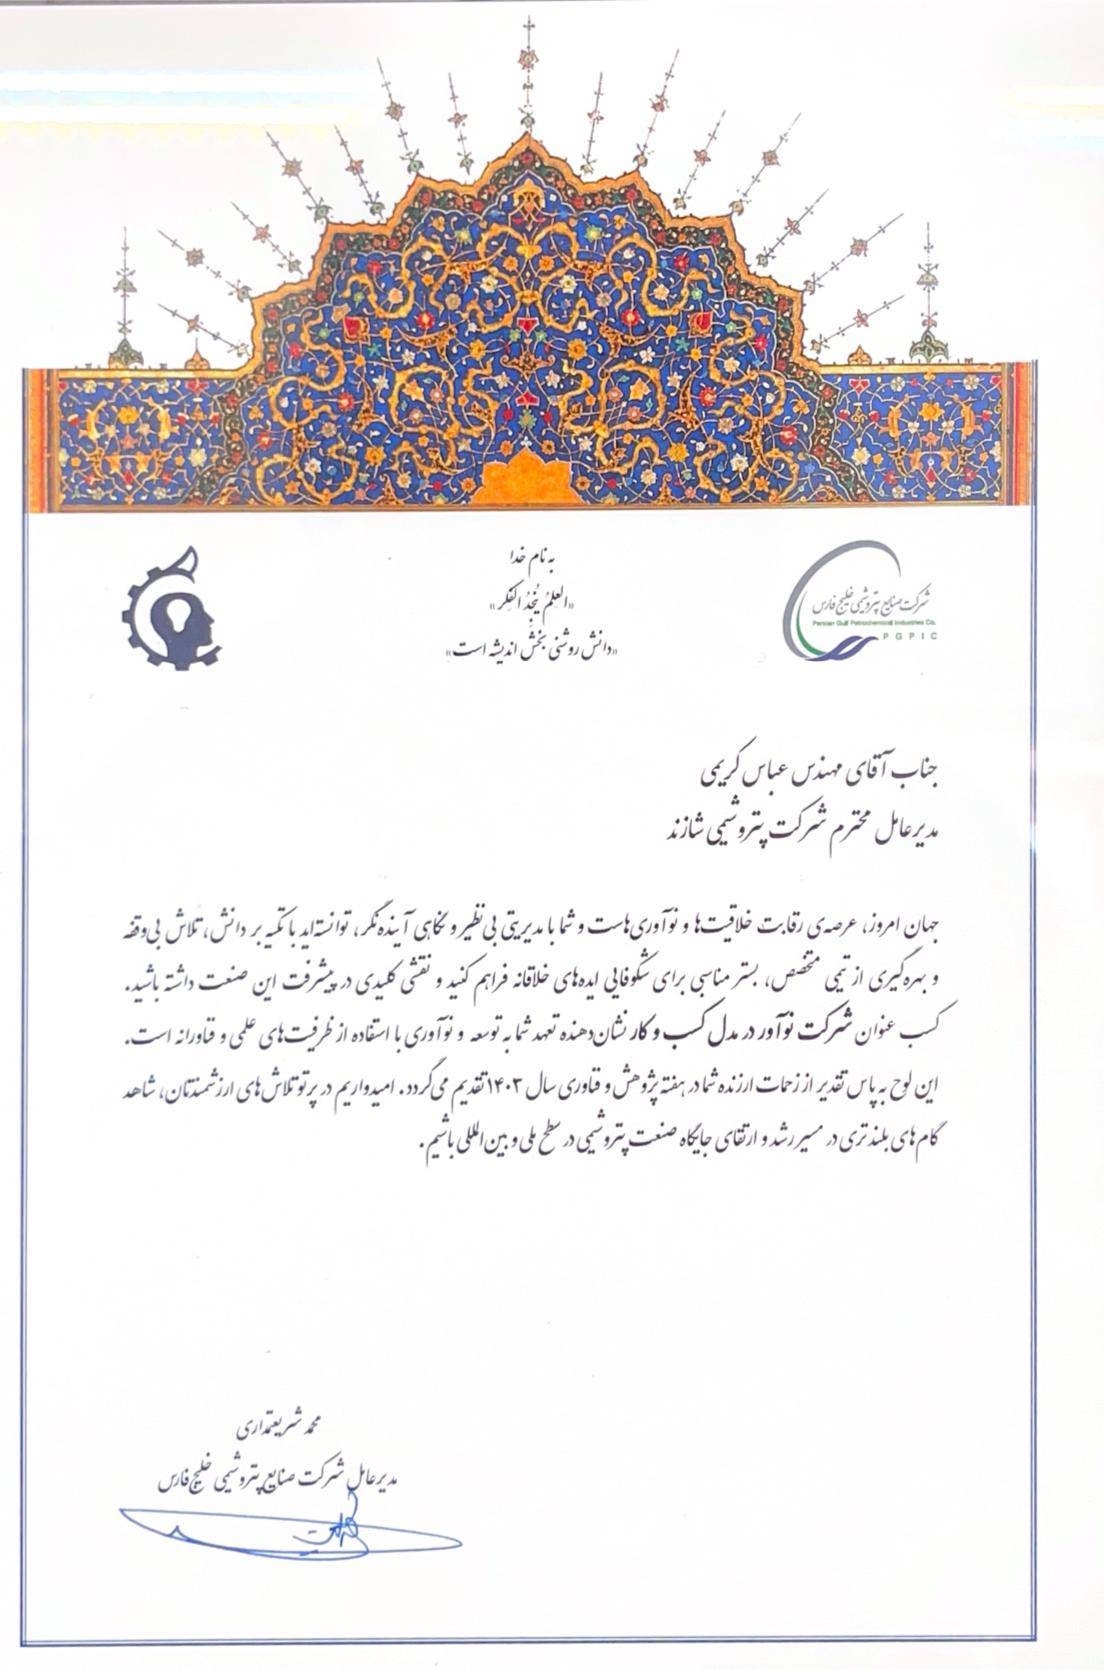 به نام خدا
«العِلمُ یُنجِدُ الفِکر»
«دانش روشنی بخش اندیشه است»
شرکت صنایع پتروشیمی خلیج فارس
Persian Gulf Petrochemical Industries Co.
PGPIC
جناب آقای مهندس عباس کریمی
مدیرعامل محترم شرکت پتروشیمی شازند
جهان امروز، عرصه‌ی رقابت خلاقیت‌ها و نوآوری‌هاست و شما با مدیریتی بی‌نظیر و نگاهی آینده‌نگر، توانسته‌اید با تکیه بر دانش، تلاش بی‌وقفه
و بهره‌گیری از تیمی متخصص، بستر مناسبی برای شکوفایی ایده‌های خلاقانه فراهم کنید و نقشی کلیدی در پیشرفت این صنعت داشته باشید.
کسب عنوان شرکت نوآور در مدل کسب و کار نشان‌دهنده تعهد شما به توسعه و نوآوری با استفاده از ظرفیت‌های علمی و فناورانه است.
این لوح به پاس تقدیر از زحمات ارزنده شما در هفته پژوهش و فناوری سال ۱۴۰۳ تقدیم می‌گردد. امیدواریم در پرتو تلاش‌های ارزشمندتان، شاهد
گام‌های بلندتری در مسیر رشد و ارتقای جایگاه صنعت پتروشیمی در سطح ملی و بین‌المللی باشیم.
محمد شریعتمداری
مدیرعامل شرکت صنایع پتروشیمی خلیج فارس